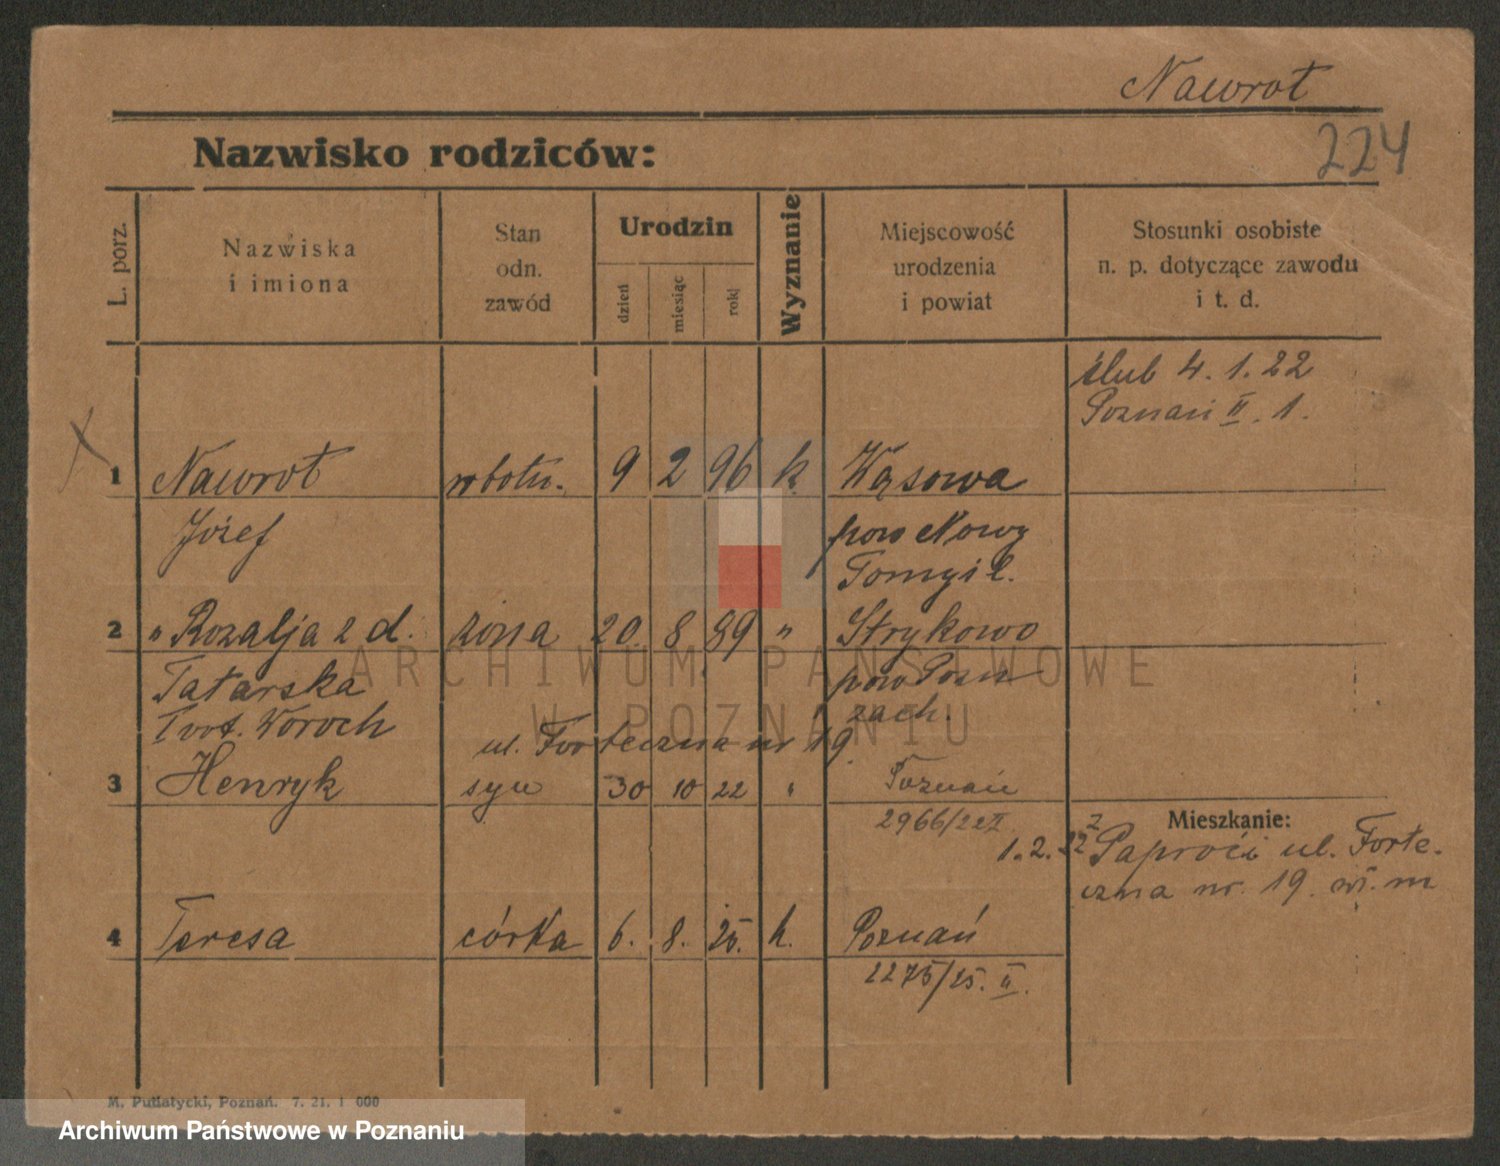 Nawrot
224
Nazwisko rodziców:
L. porz.
Nazwiska
i imiona
Stan
odn.
zawód
Urodzin
dzień
miesiąc
rok
Wyznanie
Miejscowość
urodzenia
i powiat
Stosunki osobiste
n. p. dotyczące zawodu
i t. d.
ślub 4. 1. 22
Poznań II. 1.
1 Nawrot robotn. 9 2 96 k. Wąsowa
Józef pow Nowy
Tomyśl.
2 " Rozalja z d. żona 20. 8. 89 " Strykowo
Tatarska pow Pozn
Woroch zach.
ul. Forteczna nr 19
3 Henryk syn 30 10 22 " Poznań
2966/22 II
Mieszkanie:
1. 2. 22 z Paproci ul. Forte-
czna nr. 19.
4 Teresa córka 6. 8. 25. k. Poznań
2275/25. II.
M. Putiatycki, Poznań. 7. 21. 1 000
ARCHIWUM PAŃSTWOWE
W POZNANIU
Archiwum Państwowe w Poznaniu